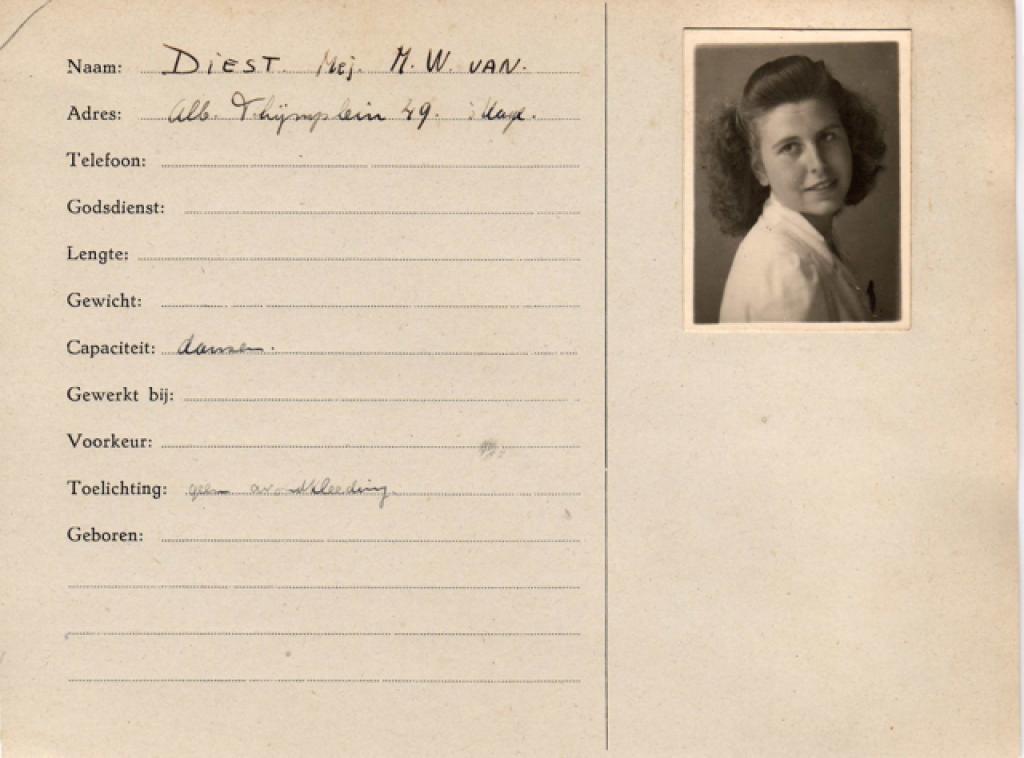 Naam: DIEST. Mej. M. W. VAN.
Adres: Alb. Thijmplein 49. Haag.
Telefoon:
Godsdienst:
Lengte:
Gewicht:
Capaciteit: dansen.
Gewerkt bij:
Voorkeur:
Toelichting: geen avondkleeding.
Geboren: